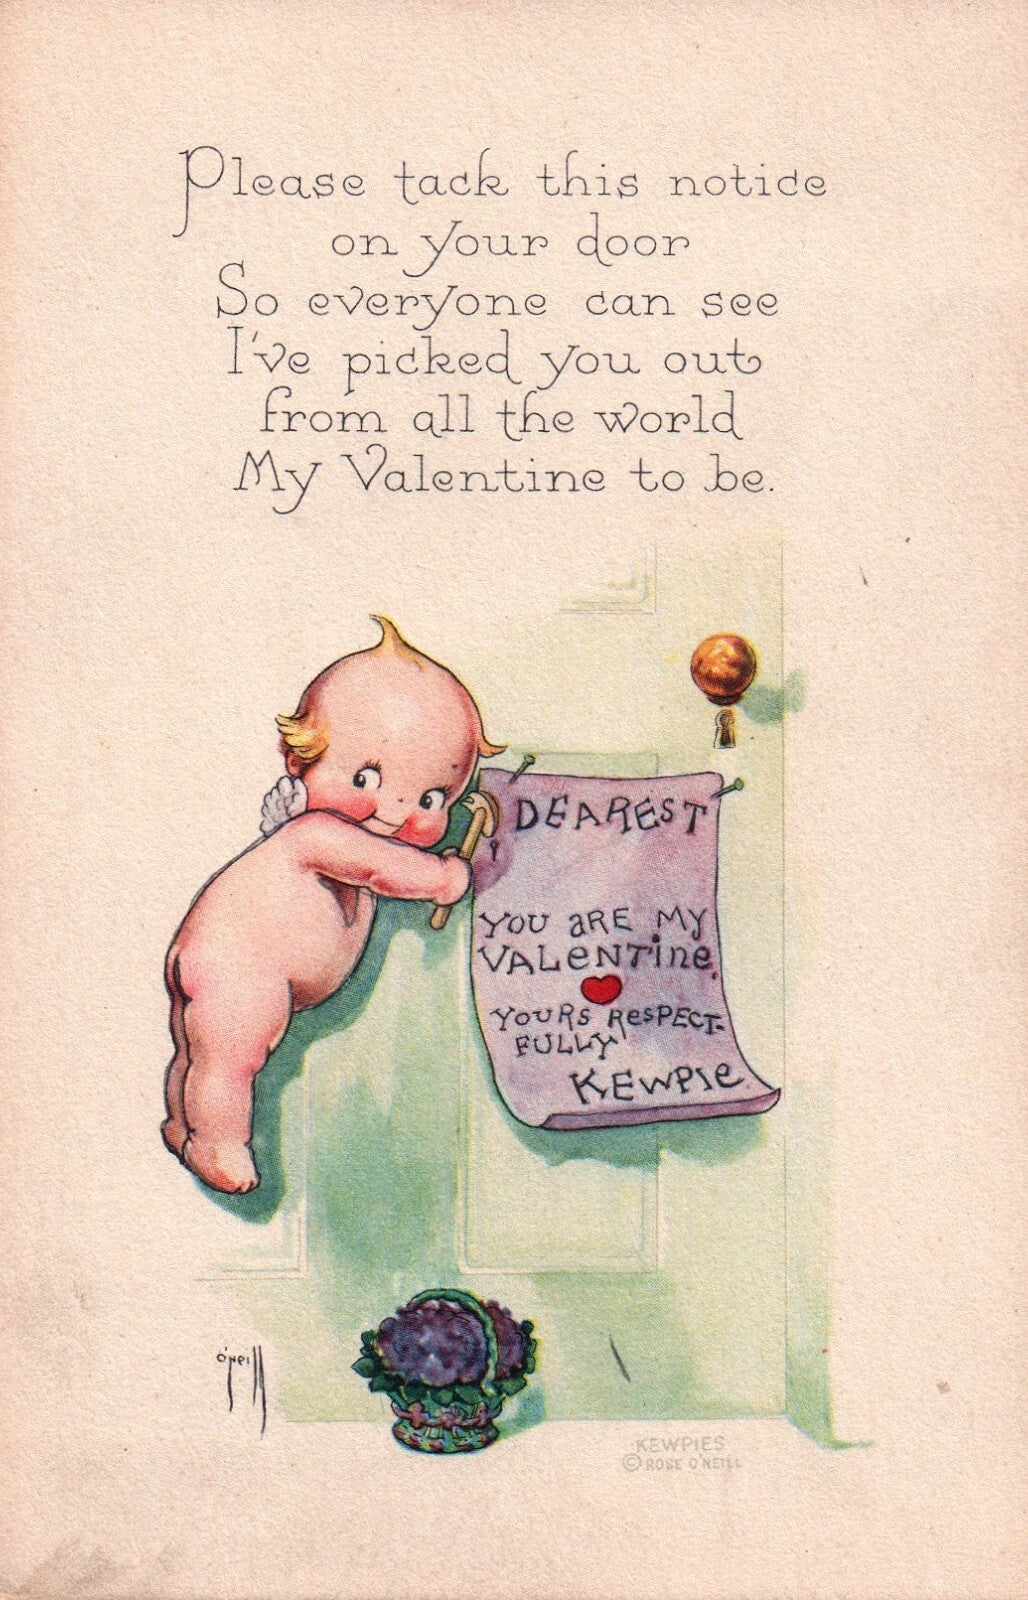 Please tack this notice
on your door
So everyone can see
I've picked you out
from all the world
My Valentine to be.
DEAREST
YOU ARE MY
VALENTINE.
YOURS RESPECT-
FULLY
KEWPIE
O'Neill
KEWPIES
© ROSE O'NEILL